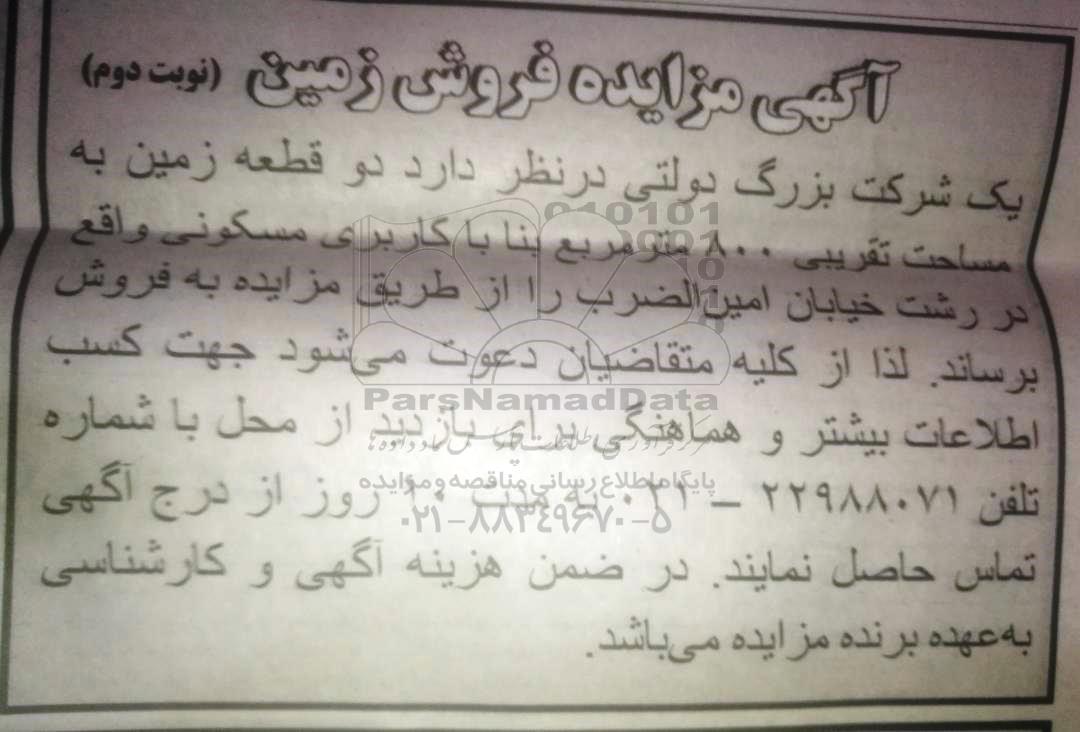 آگهی مزایده فروش زمین (نوبت دوم)
یک شرکت بزرگ دولتی درنظر دارد دو قطعه زمین به
مساحت تقریبی ۸۰۰ مترمربع بنا با کاربری مسکونی واقع
در رشت خیابان امین‌الضرب را از طریق مزایده به فروش
برساند. لذا از کلیه متقاضیان دعوت می‌شود جهت کسب
ParsNamadData
اطلاعات بیشتر و هماهنگی برای بازدید از محل با شماره
پایگاه اطلاع رسانی مناقصه و مزایده
تلفن ۲۲۹۸۸۰۷۱ – ۰۲۱ به مدت ۱۰ روز از درج آگهی
۰۲۱-۸۸۳۴۹۶۷۰-۵
تماس حاصل نمایند. در ضمن هزینه آگهی و کارشناسی
به‌عهده برنده مزایده می‌باشد.